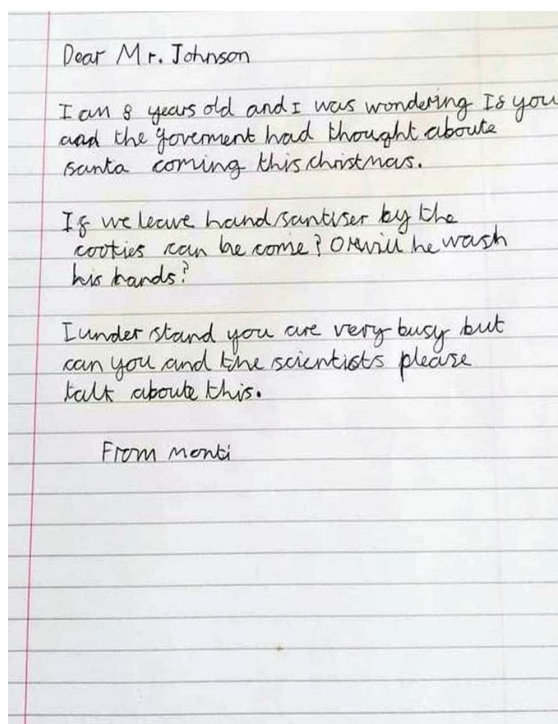 Dear Mr. Johnson
I am 8 years old and I was wondering If you
and the goverment had thought aboute
santa coming this christmas.
If we leave hand santiser by the
cookies can he come? Or will he wash
his hands?
I under stand you are very busy but
can you and the scientists please
talk aboute this.
From monti